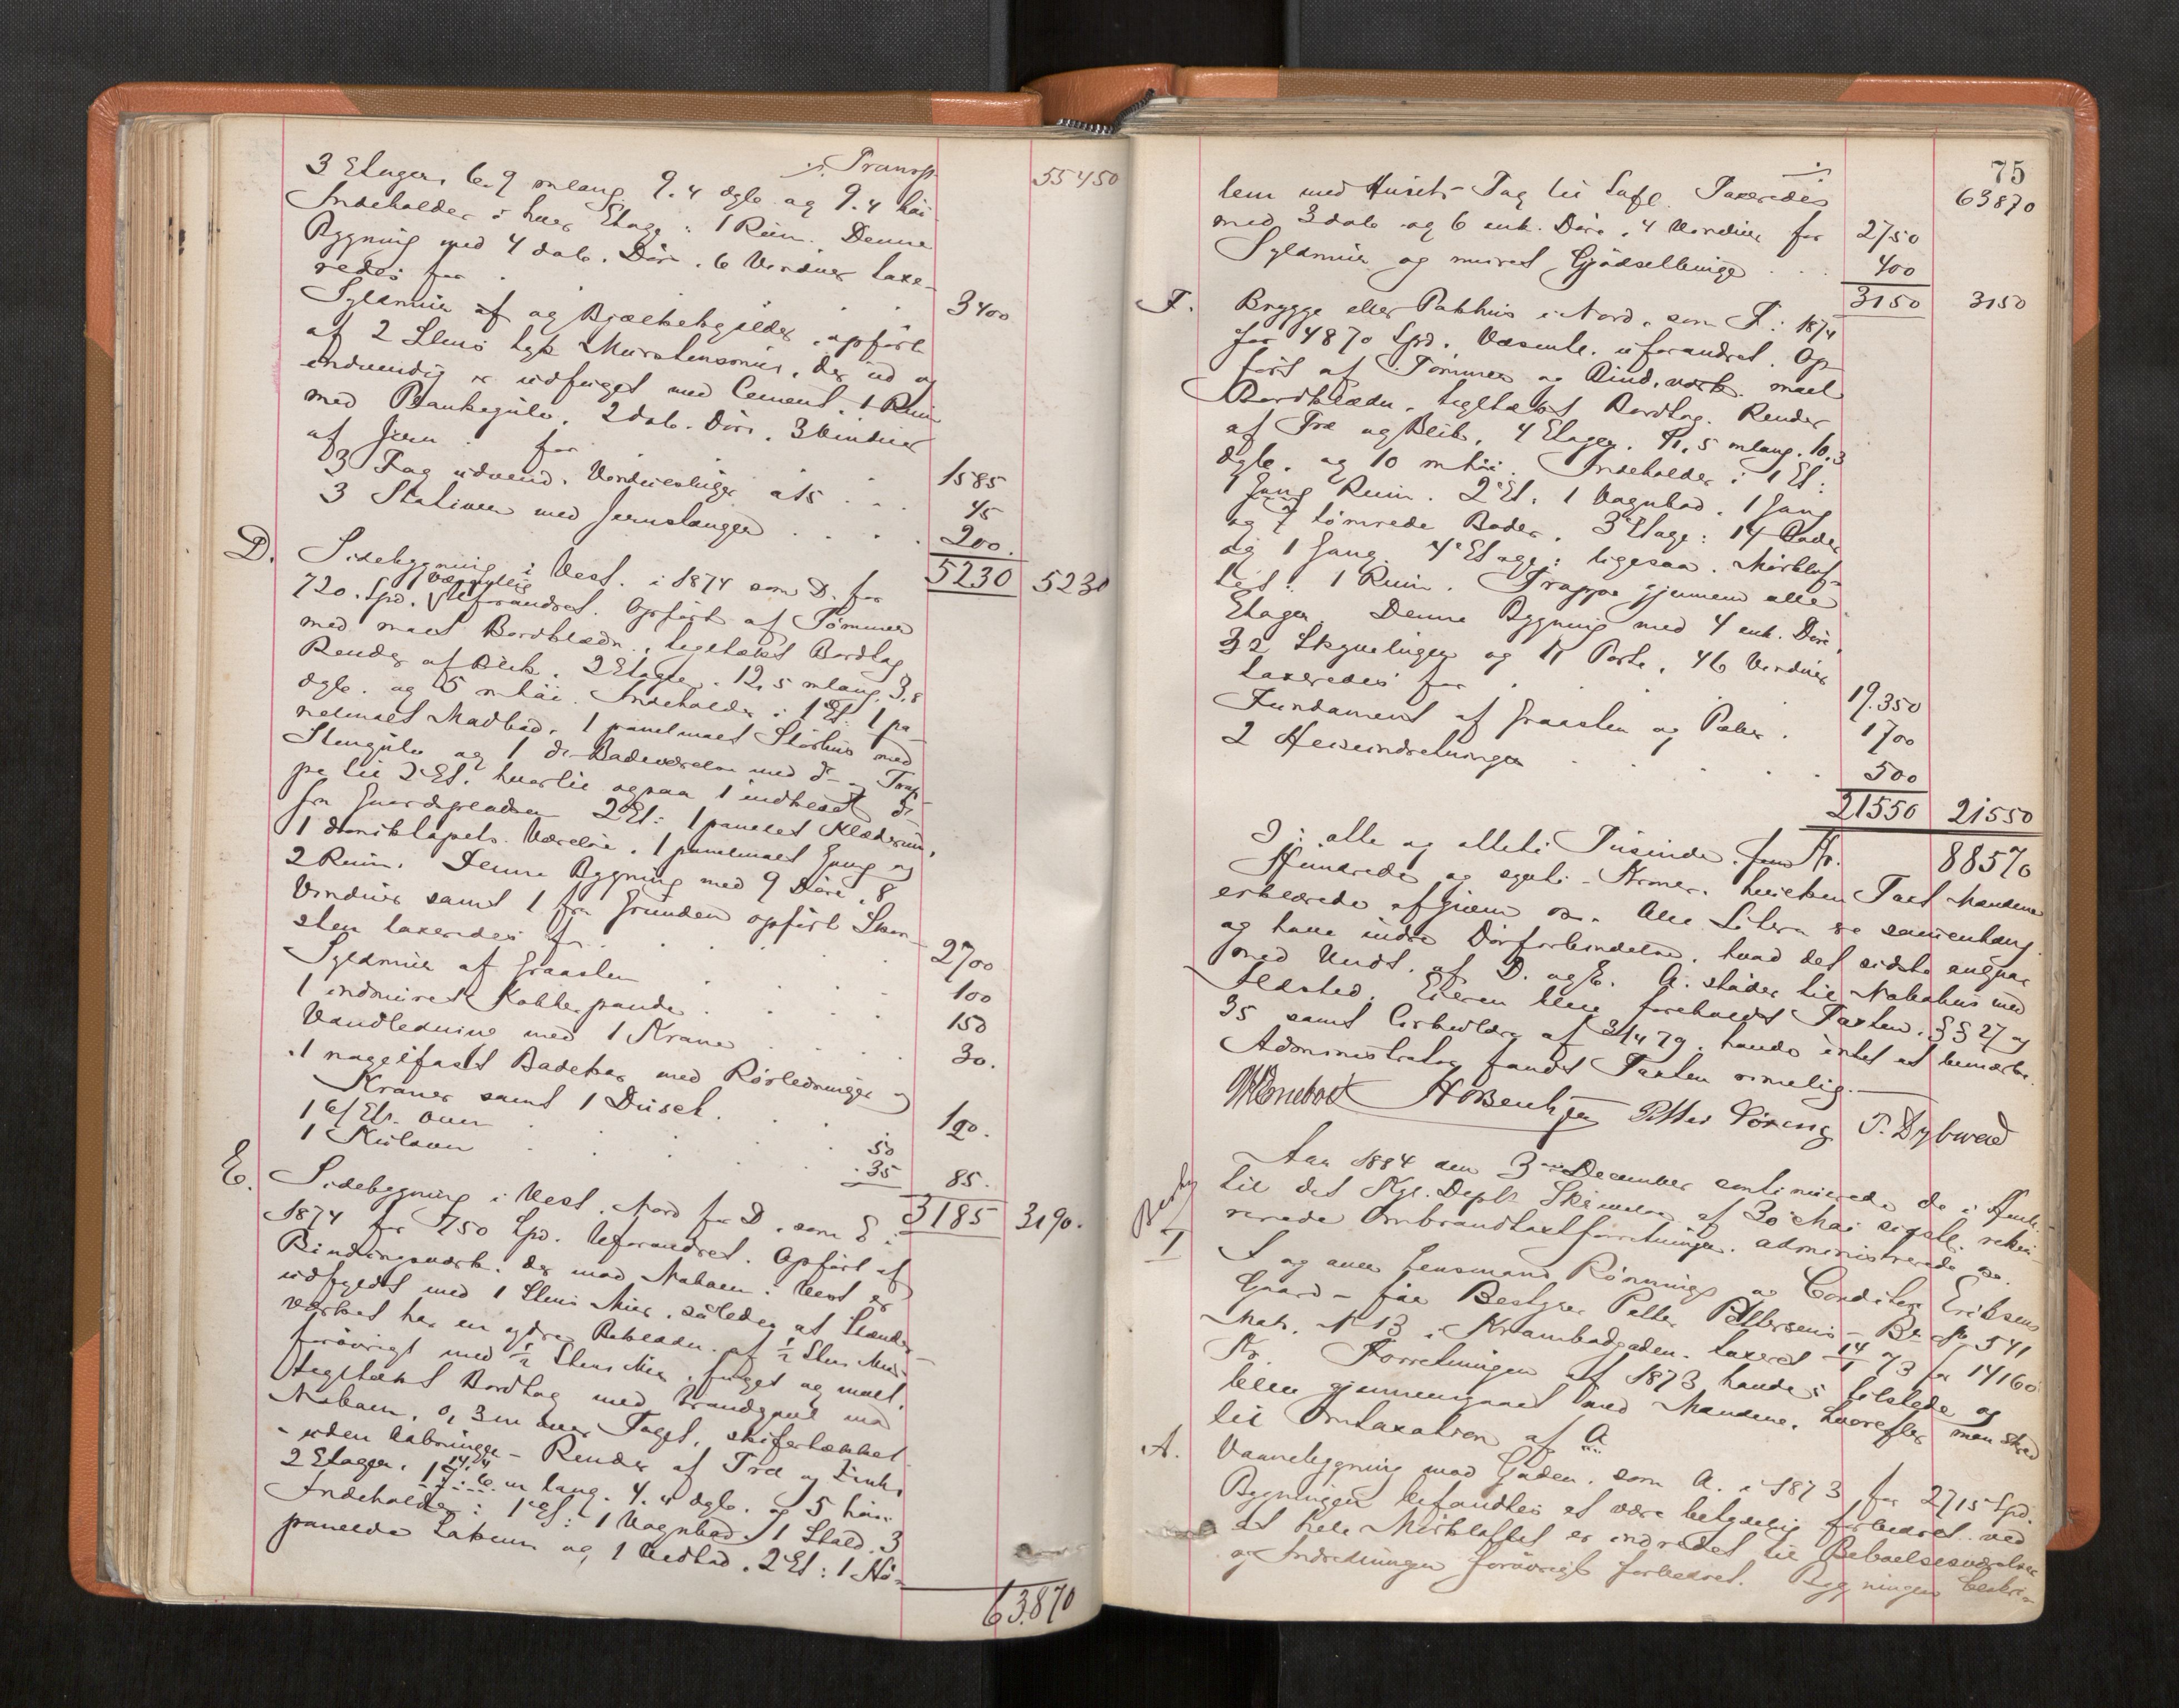 ·/. Transp. 55450
3 Etager, 6.9 m lang 9.4 dyb og 9.4 høi
Indeholder i hver Etage: 1 Rum. Denne
Bygning med 4 dob. Døre, 6 Vinduer taxe-
redes for . . . 3400
Syldmur af og Bjælkekjelder, opført
af 2 Stens tyk Murstensmur, der ud og
indvendig er udfuget med Cement. 1 Rum
med Plankegulv, 2 dob. Døre, 3 Vinduer
af Jern . for . . . 1585
3 Fag udvend. Vinduesluger a 15 . . . 45
3 Stativer med Jernstænger . . . . 200.
5230 5230
D. Sidebygning i Vest. i 1874 som D. for
720. Spd. væsentlig Uforandret. Opført af Tømmer
med malt Bordklædn., tegltækt Bordtag
Render af Blik. 2 Etager. 12,5 m lang, 3,8
dyb. og 5 m høi. Indeholder i 1 Et: 1 pa-
nelmalt Madbod, 1 panelmalt Størhus med
Stengulv og 1 do Badeværelse med do - Trap-
pe til 2 Et. hvortil ogsaa 1 indklædt do
fra Gaardspladsen 2 Et: 1 panelet Klæderum,
1 do. Værelse, 1 panelmalt Gang og
2 Rum. Denne Bygning med 9 Døre, 8
Vinduer samt 1 fra Grunden opført Skor-
sten taxeredes for . . . . 2700
Syldmur af Graasten . . . . 100
1 indmuret Kobberpande . . . . 150
Vandledning med 1 Krane . . . . 30.
1 nagelfast Badekar med Rørledninger og
Kraner samt 1 Dusch. . . . 120.
1 Et. Ovn . . . . 50
1 Kulovn . . . . 35 85.
3185 3190.
E. Sidebygning i Vest, Nord for D, som E i
1874 for 750 Spd. Uforandret. Opført af
Bindingsværk, der mod Naboen i Vest er
udfyldt med 1 Stens Mur, således at Stænder-
værket har en ydre Beklædn. af ½ Stens Mur
forøvrigt med ½ Stens Mur, fuget og malt,
tegltækt Bordtag med Brandgavl mod
Naboen, 0,3 m over Taget, skifertækket
- uden Aabninger - Render af Træ og Zink,
2 Etager, 14,4 17.6 m lang, 4.4 dyb. og 5 høi.
Indeholder: 1 Et: 1 Vognbod, 1 Stald, 3
panelede Lokum og 1 Vedbod. 2 Et: 1 Hø-
63.870
75
·/. 63870
lem med Husets Tag til Loft. Taxeredes
med 3 dob og 6 enk. Døre, 4 Vinduer for 2750
Syldmur og muret Gjødselbinge . . . 400
3150 3150
F. Brygge eller Pakhus i Nord, som F. i 1874
for 4870 Spd. Væsentl. uforandret. Op-
ført af Tømmer og Bind.værk. malt
Bordklædn. tegltækt Bordtag. Render
af Træ og Blik, 4 Etager. 41,5 m lang, 10,3
dyb. og 10 m høi. Indeholder i 1 Et:
1 Gang Rum. 2 Et: 1 Vognbod, 1 Gang
og 7 tømrede Boder, 3 Etage: 14 Boder
og 1 Gang 4 Etage: ligesaa. Mørklof-
tet: 1 Rum. Trappe gjennem alle
Etager Denne Bygning med 4 enk. Døre,
32 Skyveluger og 11 Porte, 46 Vinduer
taxeredes for . . . . 19.350
Fundament af Graasten og Pæler . 1700
2 Heiseindretninger . . . . . 500
21550 21550
Kr. 88570
I alt og ottetiotte Tusinde, fem
Hundrede og sytti - Kroner, hvilken Taxt Mændene
erklærede afgiven &c. Alle Litera er sammenhæng.
og have indre Dørforbindelse, hvad det sidste angaar
med Undt. af D. og E. A. støder til Nabohus med
Ildsted. Eieren blev foreholdt Taxten. §§ 27 og
35 samt Cirkulære af 3/4 79. havde intet at bemærke.
Administrator fandt Taxten rimelig.
P. Dybwad
Aar 1884 den 3die December continuerede de i Henh.
til det Kgl. Depts Skrivelse af 30 Mai sidstl. rekvi-
rerede Ombrandtaxtforretninger. administrerede &c.
I I og over Lensmand Rønnings og Conditor Eriksens
Gaard - før Bestyrer Petter Pettersens - Br. No 541
Matr. No 13 i Krambodgaden, taxeret 14/1 73 for 14160
Kr. Forretningen af 1873 havdes tilstede og
blev gjennemgaaet med Mændene, hvorefter man skred
til Omtaxation af A
A. Vaanebygning mod Gaden, som A. i 1873 for 2715 Spd.
Bygningen befandtes at være betydelig forbedret ved
at hele Mørkloftet er indredet til Beboelsesværelser
og Indredningen forøvrigt forbedret. Bygningen beskri-